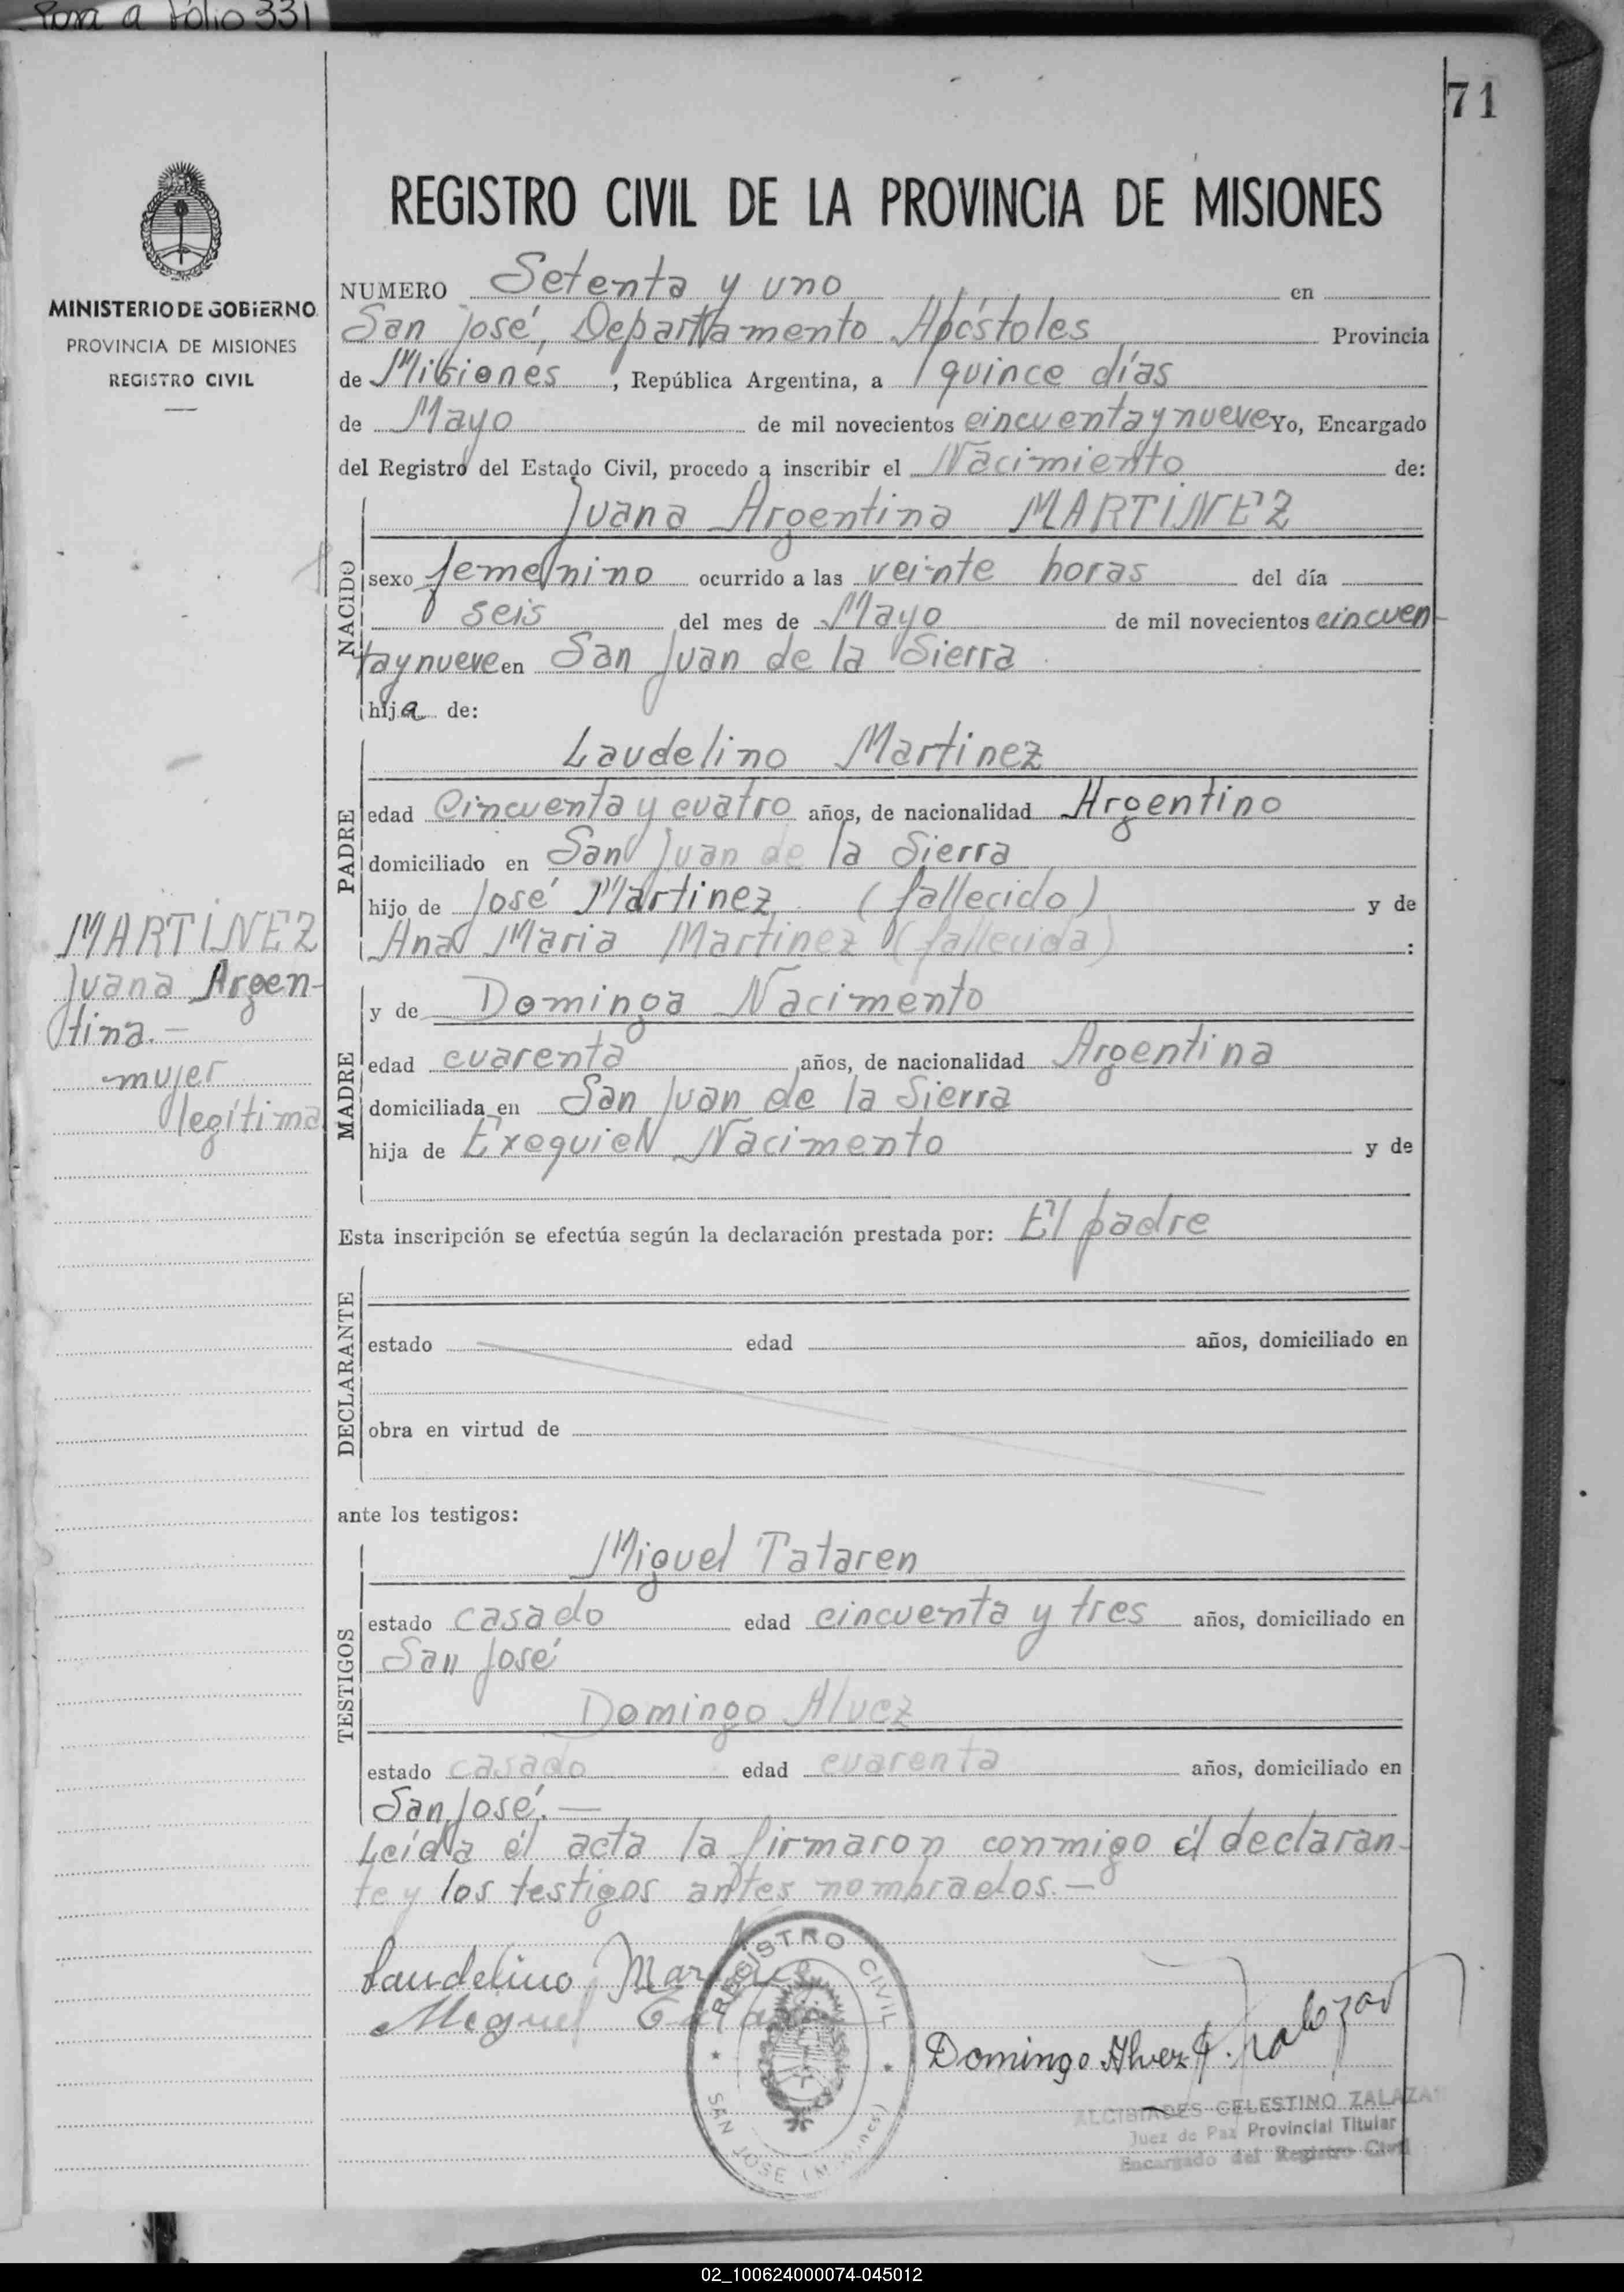 Pasa a Folio 331
71
MINISTERIO DE GOBIERNO
PROVINCIA DE MISIONES
REGISTRO CIVIL
REGISTRO CIVIL DE LA PROVINCIA DE MISIONES
NUMERO Setenta y uno en
San José, Departamento Apóstoles Provincia
de Misiones , República Argentina, a quince días
de Mayo de mil novecientos cincuenta y nueve Yo, Encargado
del Registro del Estado Civil, procedo a inscribir el Nacimiento de:
NACIDO
Juana Argentina MARTINEZ
sexo femenino ocurrido a las veinte horas del día
seis del mes de Mayo de mil novecientos cincuen-
ta y nueve en San Juan de la Sierra
hija de:
PADRE
Laudelino Martinez
edad Cincuenta y cuatro años, de nacionalidad Argentino
domiciliado en San Juan de la Sierra
hijo de José Martinez (fallecido) y de
Ana Maria Martinez (fallecida) :
MARTINEZ
Juana Argen-
tina.-
mujer
legítima
MADRE
y de Dominga Nacimento
edad cuarenta años, de nacionalidad Argentina
domiciliada en San Juan de la Sierra
hija de Exequiel Nacimento y de
Esta inscripción se efectúa según la declaración prestada por: El padre
DECLARANTE
estado edad años, domiciliado en
obra en virtud de
ante los testigos:
TESTIGOS
Miguel Tataren
estado casado edad cincuenta y tres años, domiciliado en
San José
Domingo Alvez
estado casado edad cuarenta años, domiciliado en
San José.-
Leída el acta la firmaron conmigo el declaran-
te y los testigos antes nombrados.-
Laudelino Martinez
Miguel
Domingo Alvez
REGISTRO CIVIL
SAN JOSE (Misiones)
ALCIBIADES CELESTINO ZALAZAR
Juez de Paz Provincial Titular
Encargado del Registro Civil
02_100624000074-045012